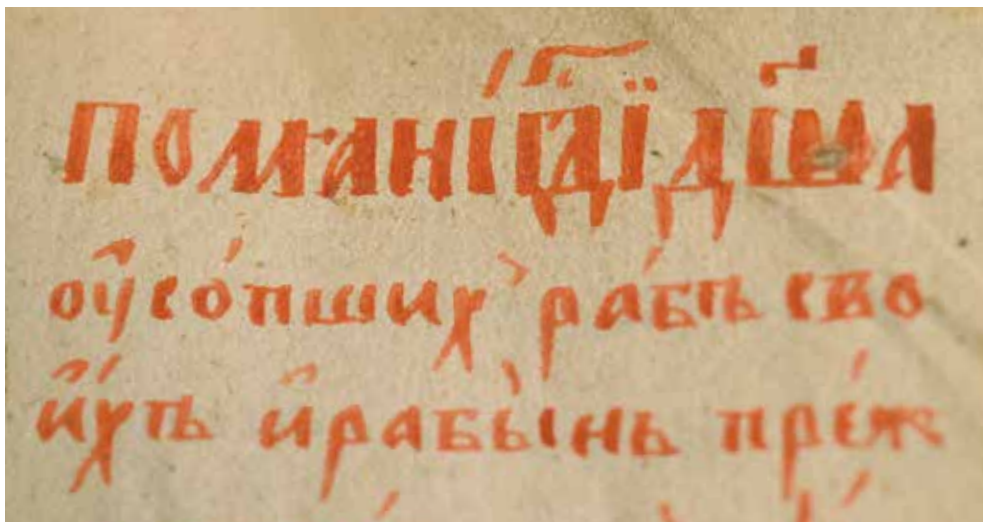 Помѧни́ гд҇и дш҃а
оу҆со́пших̾ ра́бъ сво
и҆́хъ и҆ рабы́нь пре́ж